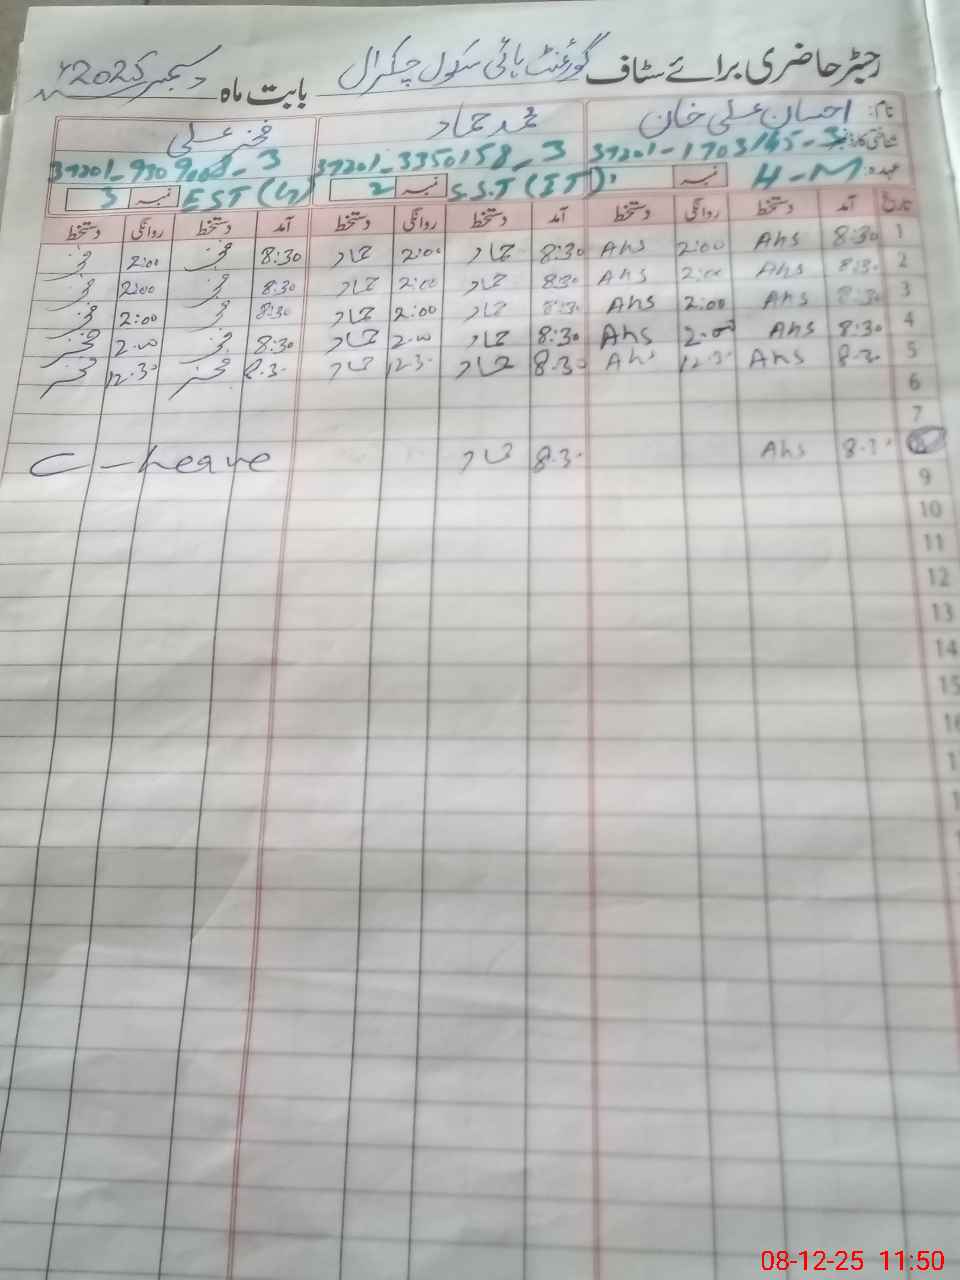 رجسٹر حاضری برائے سٹاف گورنمنٹ ہائی سکول چکرال بابت ماہ دسمبر 2025ء
نام: احسان علی خان محمد حماد فخر علی
شناختی کارڈ نمبر 37201-1703145-3 37201-3350158-3 37201-9309008-3
عہدہ: H-M نمبر S.S.T (IT) نمبر 2 EST (G) نمبر 3
تاریخ آمد دستخط روانگی دستخط آمد دستخط روانگی دستخط آمد دستخط روانگی دستخط
1 8:30 Ahs 2:00 Ahs 8:30 حماد 2:00 حماد 8:30 فخر 2:00 فخر
2 8:30 Ahs 2:00 Ahs 8:30 حماد 2:00 حماد 8:30 فخر 2:00 فخر
3 8:30 Ahs 2:00 Ahs 8:30 حماد 2:00 حماد 8:30 فخر 2:00 فخر
4 8:30 Ahs 2:00 Ahs 8:30 حماد 2:00 حماد 8:30 فخر 2:00 فخر
5 8:30 Ahs 12:30 Ahs 8:30 حماد 12:30 حماد 8:30 فخر 12:30 فخر
6
7
8:30 Ahs 8:30 حماد C-leave
9
10
11
12
13
14
15
08-12-25 11:50